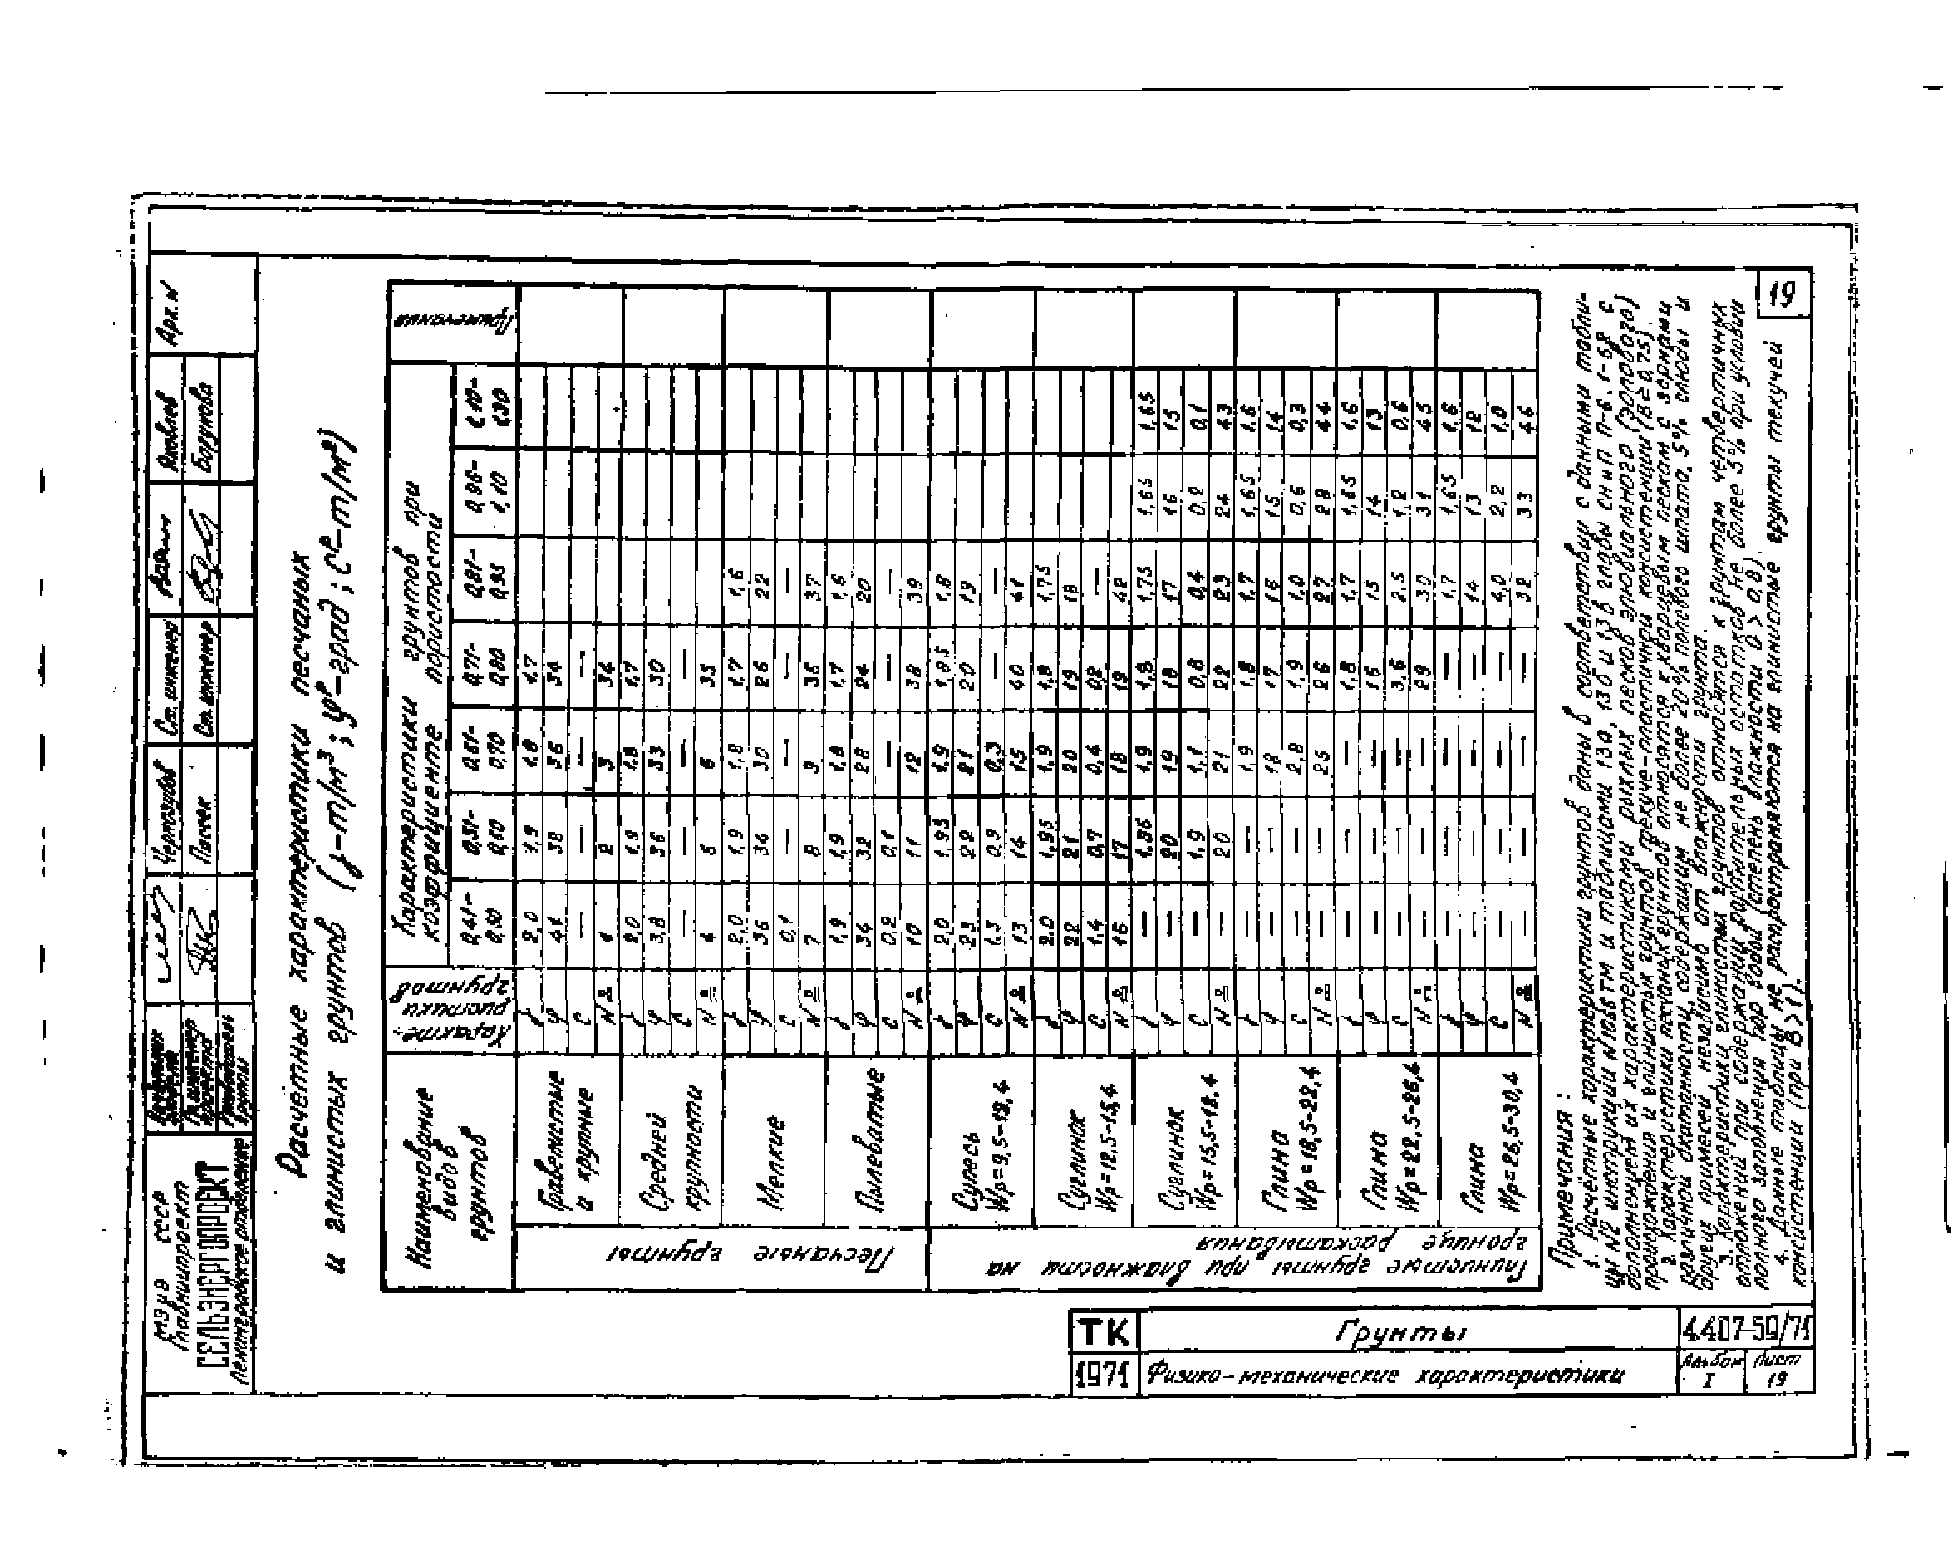 19
Расчётные характеристики песчаных
и глинистых грунтов (γ-т/м³; φº-град; Cº-т/м²)
Наименование видов грунтов | Характеристики грунтов | Характеристики грунтов при коэффициенте пористости | Примечания
0,41-0,50 | 0,51-0,60 | 0,61-0,70 | 0,71-0,80 | 0,81-0,95 | 0,96-1,10 | 1,10-1,30
Песчаные грунты
Гравелистые и крупные
γ 2,0 1,9 1,8 1,7
φ 41 38 36 34
C — — — —
№ 1 2 3 34
Средней крупности
γ 2,0 1,9 1,8 1,7
φ 3,8 36 33 30
C — — — —
№ 4 5 6 35
Мелкие
γ 2,0 1,9 1,8 1,7 1,6
φ 36 34 30 26 22
C 0,1 — — — —
№ 7 8 9 36 37
Пылеватые
γ 1,9 1,9 1,8 1,7 1,6
φ 34 32 28 24 20
C 0,2 0,1 — — —
№ 10 11 12 38 39
Глинистые грунты при влажности на границе раскатывания
Супесь Wp=9,5-12,4
γ 2,0 1,95 1,9 1,85 1,8
φ 23 22 21 20 19
C 1,3 0,9 0,3 — —
№ 13 14 15 40 41
Суглинок Wp=12,5-15,4
γ 2,0 1,95 1,9 1,8 1,75
φ 22 21 20 19 18
C 1,4 0,7 0,4 0,2 —
№ 16 17 18 19 42
Суглинок Wp=15,5-18,4
γ — 1,95 1,9 1,8 1,75 1,65 1,65
φ — 20 19 18 17 16 15
C — 1,9 1,1 0,8 0,4 0,2 0,1
№ — 20 21 22 23 24 43
Глина Wp=18,5-22,4
γ — — 1,9 1,8 1,7 1,65 1,6
φ — — 18 17 16 15 14
C — — 2,8 1,9 1,0 0,6 0,3
№ — — 25 26 27 28 44
Глина Wp=22,5-26,4
γ — — — 1,8 1,7 1,65 1,6
φ — — — 16 15 14 13
C — — — 3,6 2,5 1,2 0,6
№ — — — 29 30 31 45
Глина Wp=26,5-30,4
γ — — — — 1,7 1,65 1,6
φ — — — — 14 13 12
C — — — — 4,0 2,2 1,0
№ — — — — 32 33 46
Примечания:
1. Расчётные характеристики грунтов даны в соответствии с данными табли-
цы №2 инструкции №1063 тм и таблицами 13а, 13б и 13в главы СНиП II-б. 1-62 с
дополнением их характеристиками рыхлых песков элювиального (эолового)
происхождения и глинистых грунтов текуче-пластичной консистенции (В≥0,75)
2. Характеристики песчаных грунтов относятся к кварцевым пескам с зернами
различной окатанности, содержащим не более 20% полевого шпата, 5% слюды и
других примесей независимо от влажности грунта.
3. Характеристики глинистых грунтов относятся к грунтам четвертичных
отложений при содержании растительных остатков не более 5% при условии
полного заполнения пор водой (степень влажности G>0,8)
4. Данные таблицы не распространяются на глинистые грунты текучей
консистенции (при В>1).
МЭиЭ СССР
Главниипроект
СЕЛЬЭНЕРГОПРОЕКТ
Ленинградское отделение
Гл. инженер проекта
группы
Черногубов
Пассек
Ст. инженер
Ст. инженер
Яковлев
Борунова
Арх. N
ТК
1971
Грунты
Физико-механические характеристики
4.407-59/71
Альбом I
Лист 19